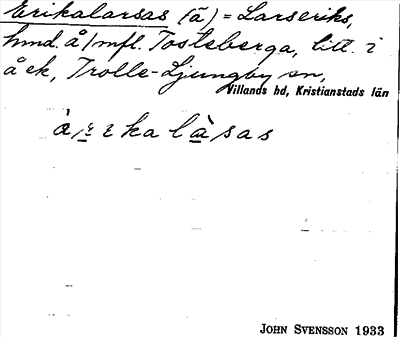 Erikalarsas (ä) = Larseriks,
hmd. å/mfl. Tosteberga, litt. i
å ek, Trolle-Ljungby sn,
Villands hd, Kristianstads län
à r ε k a l à s a s
JOHN SVENSSON 1933